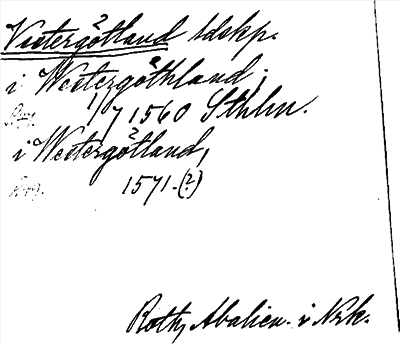 Vestergötland ldskp.
i Westergöthland;
1/7 1560 Sthlm.
i Westergötland,
1571.(?)
Roth, Abalien. i Nrk.